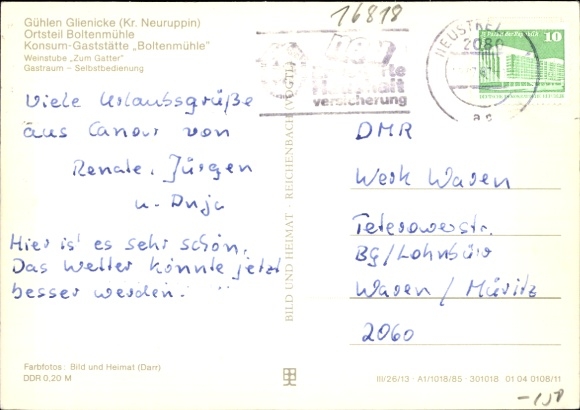 16818
Gühlen Glienicke (Kr. Neuruppin)
Ortsteil Boltenmühle
Konsum-Gaststätte „Boltenmühle"
Weinstube „Zum Gatter"
Gastraum – Selbstbedienung
versicherung
NEUSTREL
2080
10
Viele Urlaubsgrüße
aus Canow von
Renate, Jürgen
u.
Hier ist es sehr schön.
Das Wetter könnte jetzt
besser werden.
BILD UND HEIMAT · REICHENBACH (VOGTL)
DMR
Werk Waren
Teterowerstr.
BG/Lohnbüro
Waren / Müritz
2060
Farbfotos: Bild und Heimat (Darr)
DDR 0,20 M
III/26/13 · A1/1018/85 · 301018 01 04 0108/11